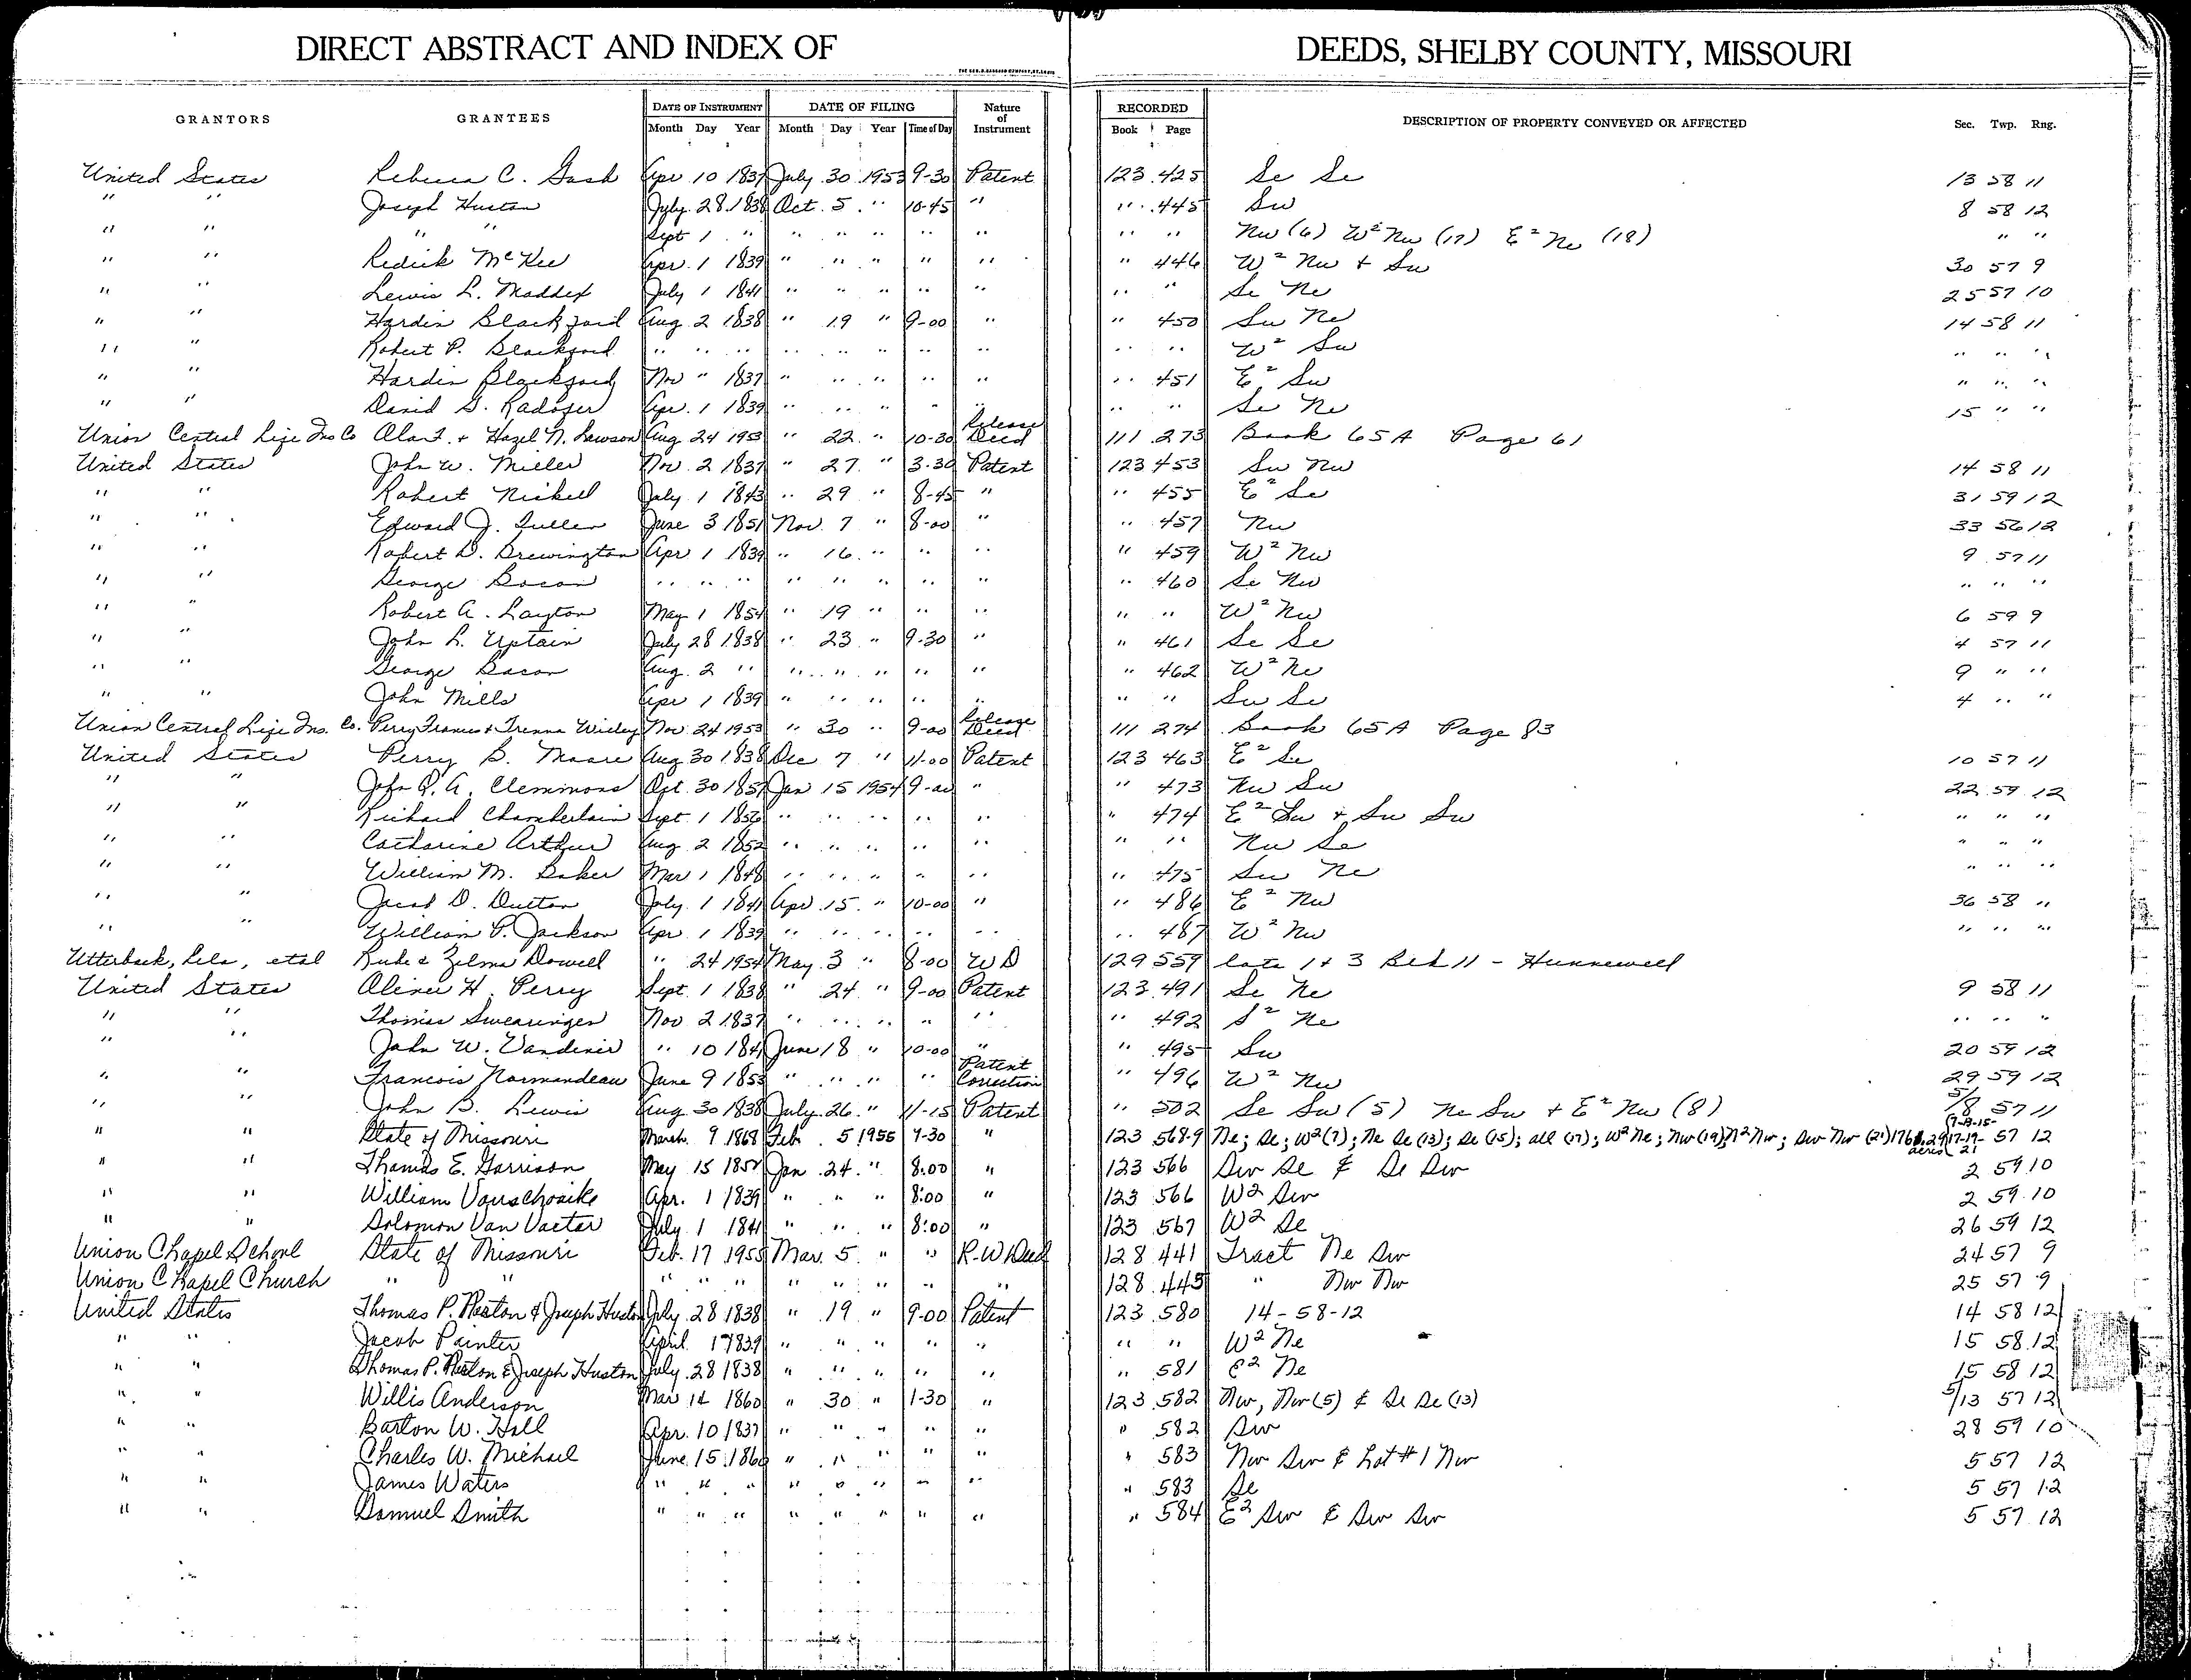 DIRECT ABSTRACT AND INDEX OF DEEDS, SHELBY COUNTY, MISSOURI
GRANTORS GRANTEES DATE OF INSTRUMENT DATE OF FILING Nature of Instrument RECORDED DESCRIPTION OF PROPERTY CONVEYED OR AFFECTED Sec. Twp. Rng.
Month Day Year Month Day Year Time of Day Book Page
United States Rebecca C. Gash Apr 10 1837 July 30 1953 9-30 Patent 123 425 Se Se 13 58 11
" " Joseph Huston July 28 1838 Oct. 5 " 10-45 " " 445 Sw 8 58 12
" " " " Sept 1 " " " " " " " " Nw (6) W² Nw (17) E² Ne (18) " "
" " Redick McKee Apr. 1 1839 " " " " " " 446 W² Nw + Sw 30 57 9
" " Lewis L. Maddex July 1 1841 " " " " " " " Se Ne 25 57 10
" " Hardin Blackford Aug 2 1838 " 19 " 9-00 " " 450 Sw Ne 14 58 11
" " Robert P. Blackford " " " " " " " " " " W² Sw " " "
" " Hardin Blackford Nov " 1837 " " " " " " 451 E² Sw " " "
" " David G. Apr. 1 1839 " " " " " " " Se Ne 15 " "
Union Central Life Ins Co + Hazel N. Lawson Aug 24 1953 " 22 " 10-30 Release Deed 111 273 Book 65A Page 61
United States John W. Miller Nov. 2 1837 " 27 " 3-30 Patent 123 453 Sw Nw 14 58 11
" " Robert Nickell July 1 1843 " 29 " 8-45 " " 455 E² Se 31 59 12
" " Edward J. Fuller June 3 1851 Nov. 7 " 8-00 " " 457 Nw 33 56 12
" " Robert D. Brewington Apr 1 1839 " 16 " " " " 459 W² Nw 9 57 11
" " George Bacon " " " " " " " " " 460 Se Nw " " "
" " Robert A. Layton May 1 1854 " 19 " " " " " W² Nw 6 59 9
" " John L. Uptain July 28 1838 " 23 " 9-30 " " 461 Se Se 4 57 11
" " George Bacon Aug. 2 " " " " " " " 462 W² Ne 9 " "
" " John Mills Apr 1 1839 " " " " " " " Sw Se 4 " "
Union Central Life Ins. Co. Perry Francis & Wisley Nov. 24 1953 " 30 " 9-00 Release Deed 111 274 Book 65A Page 83
United States Perry B. Moore Aug 30 1838 Dec 7 " 11-00 Patent 123 463 E² Se 10 57 11
" " John Q. A. Clemmons Oct. 30 1857 Jan 15 1954 9-00 " " 473 Nw Sw 22 59 12
" " Richard Chamberlain Sept. 1 1856 " " " " " " 474 E² Sw + Sw Sw " " "
" " Catharine Arthur Aug 2 1852 " " " " " " " Nw Se " " "
" " William M. Baker Mar 1 1848 " " " " " " 475 Sw Ne " " "
" " Jacob D. Dutton July 1 1841 Apr. 15 " 10-00 " " 486 E² Nw 36 58 "
" " William P. Jackson Apr 1 1839 " " " " " " 487 W² Nw " " "
Utterback, Lela, etal Rube & Zelma Dowell " 24 1954 May 3 " 8-00 W D 129 559 lots 1 + 3 Blk 11 - Hunnewell
United States Oliver H. Perry Sept. 1 1838 " 24 " 9-00 Patent 123 491 Se Ne 9 58 11
" " Thomas Swearingen Nov 2 1837 " " " " " " 492 S² Ne " " "
" " John W. Vandiver " 10 1841 June 18 " 10-00 " " 495 Sw 20 59 12
" " Francois Normandeau June 9 1853 " " " " Patent Correction " 496 W² Nw 29 59 12
" " John B. Lewis Aug 30 1838 July 26 " 11-15 Patent " 502 Se Sw (5) Ne Sw + E² Nw (8) 5/8 57 11
" " State of Missouri March 9 1868 Feb. 5 1955 9-30 " 123 568-9 Ne; Se; W²(7); Ne Se (13); Se (15); all (17); W² Ne; Nw (19); N² Nw; Sw Nw (21) acres 7-13-15-17-19-21 57 12
" " Thomas E. Garrison May 15 Jan. 24 " 8:00 " 123 566 Sw Se & Se Sw 2 59 10
" " William Apr. 1 1839 " " " 8:00 " 123 566 W² Sw 2 59 10
" " Solomon Van Vacter July 1 1841 " " " 8:00 " 123 567 W² Se 26 59 12
Union Chapel School State of Missouri Feb. 17 1955 Mar. 5 " " R-W Deed 128 441 Tract Ne Sw 24 57 9
Union Chapel Church " " " " " " " " " " 128 445 " Nw Nw 25 57 9
United States Thomas P. & Joseph Huston July 28 1838 " 19 " 9-00 Patent 123 580 14-58-12 14 58 12
" " Jacob Painter April 1 1839 " " " " " " " W² Ne 15 58 12
" " Thomas P. & Joseph Huston July 28 1838 " " " " " " 581 E² Ne 15 58 12
" " Willis Anderson Mar 14 1860 " 30 " 1-30 " 123 582 Nw, Nw (5) & Se Se (13) 5/13 57 12
" " Barton W. Hall Apr. 10 1837 " " " " " " 582 Sw 28 59 10
" " Charles W. Michael June 15 1860 " " " " " " 583 Nw Sw & Lot #1 Nw 5 57 12
" " James Waters " " " " " " " " " 583 Se 5 57 12
" " Samuel Smith " " " " " " " " " 584 E² Sw & Sw Sw 5 57 12